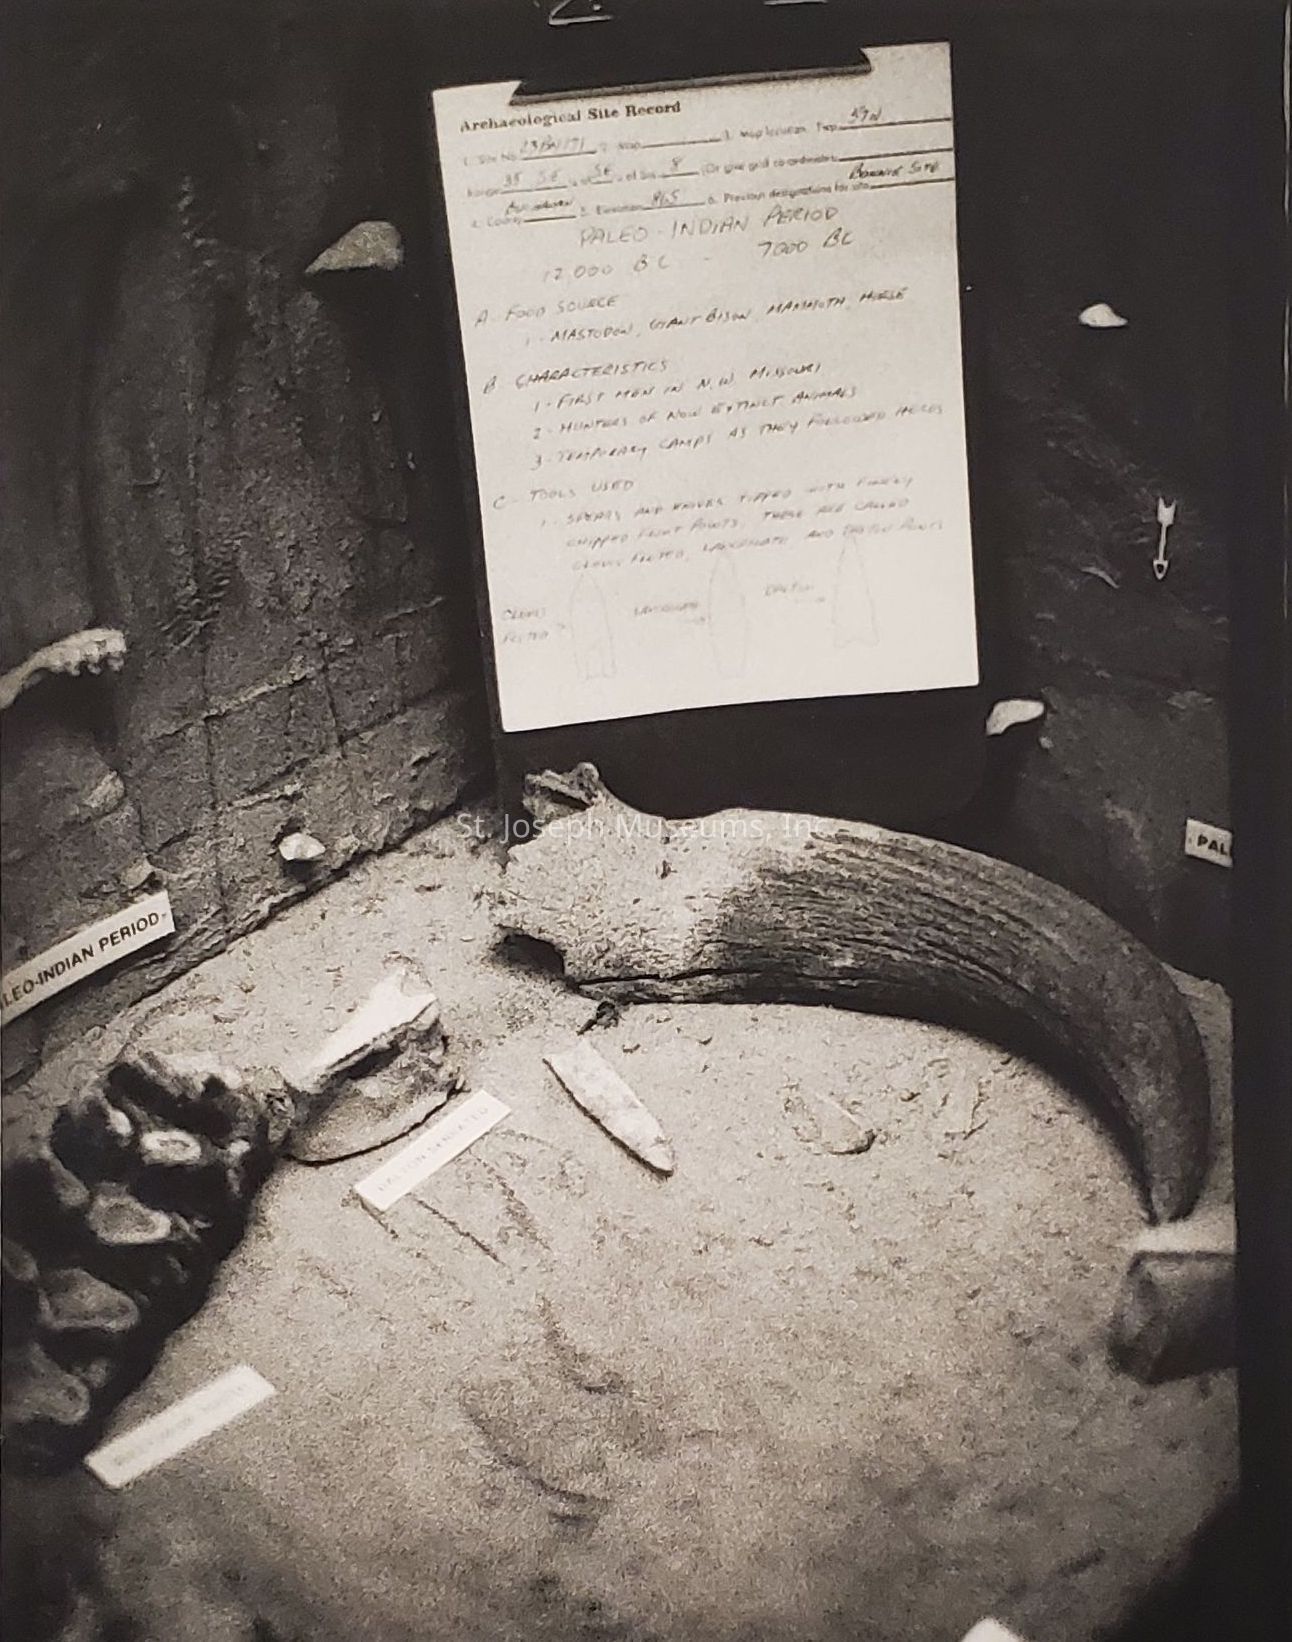 Archaeological Site Record
1. Site No. 23BN171 2. Map 3. Map location: Twp. 57N
Range 35 SE ¼ of SE ¼ of Sec. 8 (Or give grid co-ordinates
4. County Buchanan 5. Elevation 865 6. Previous designations for site Bonnie Site
PALEO-INDIAN PERIOD
12,000 BC - 7000 BC
A. FOOD SOURCE
1- MASTODON, GIANT BISON, MAMMOTH, HORSE
B CHARACTERISTICS
1- FIRST MEN IN N.W. MISSOURI
2- HUNTERS OF NOW EXTINCT ANIMALS
3- TEMPORARY CAMPS AS THEY FOLLOWED HERDS
C- TOOLS USED
1- SPEARS AND KNIVES TIPPED WITH FINELY
CHIPPED FLINT POINTS. THESE ARE CALLED
CLOVIS FLUTED, LANCEOLATE AND DALTON POINTS
CLOVIS FLUTED
LANCEOLATE
DALTON
St. Joseph Museums, Inc
PAL
LEO-INDIAN PERIOD
DALTON SERRATED